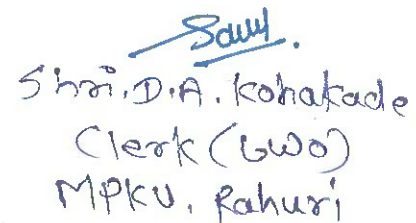 Shri. D. A. Kohakade
Clerk (UWO)
MPKV, Rahuri